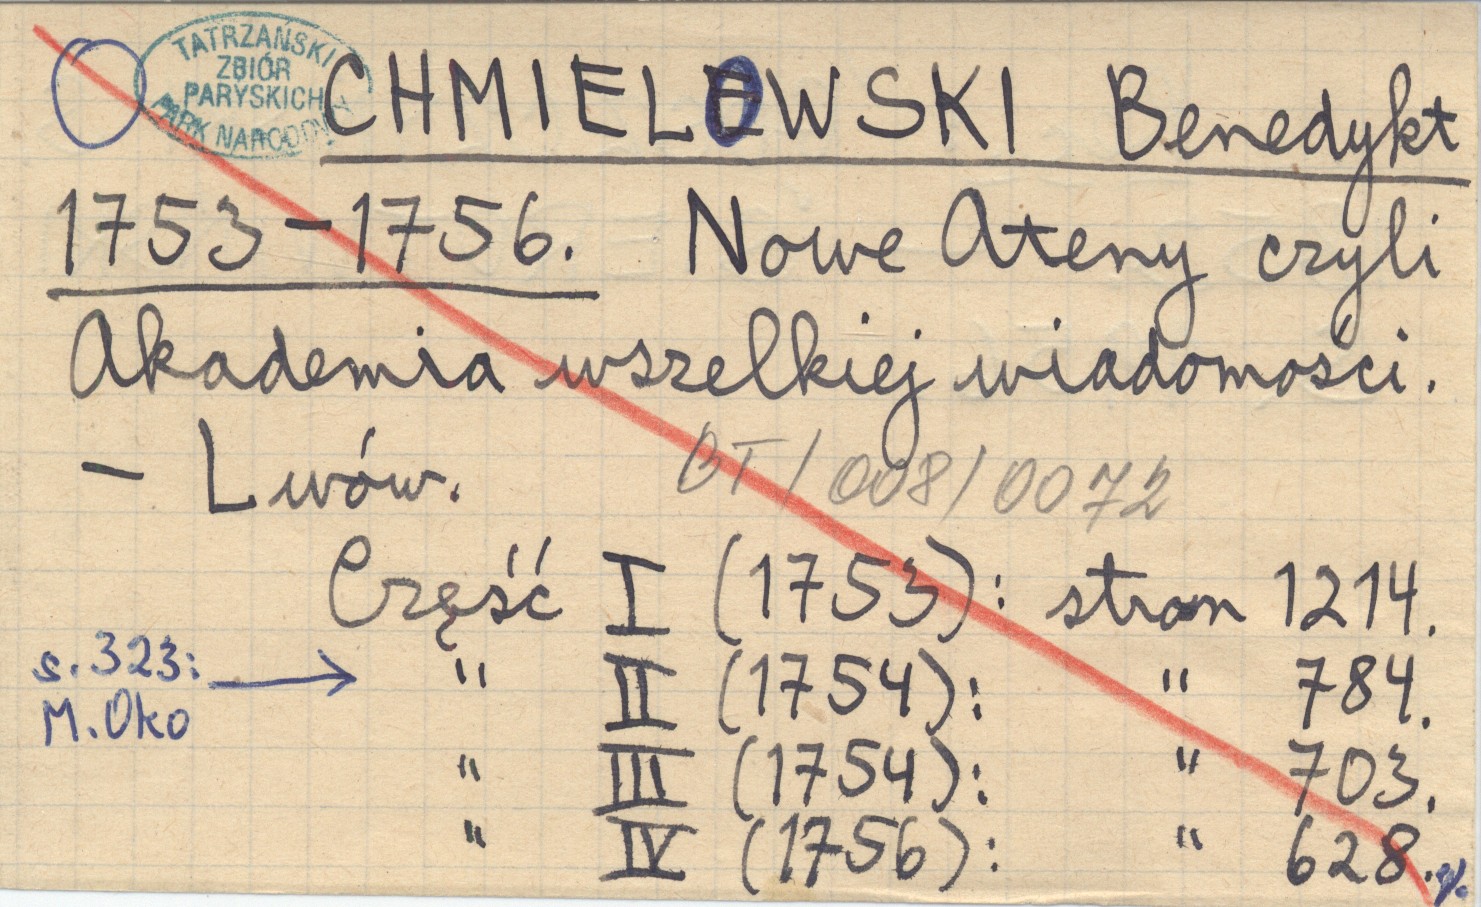 TATRZAŃSKI
ZBIÓR
PARYSKICH
PARK NARODOWY
CHMIELOWSKI Benedykt
1753-1756. Nowe Ateny czyli
Akademia wszelkiej wiadomości.
- Lwów. BT/008/0072
Część I (1753): stron 1214.
s. 323: → " II (1754): " 784.
M. Oko
" III (1754): " 703.
" IV (1756): " 628.